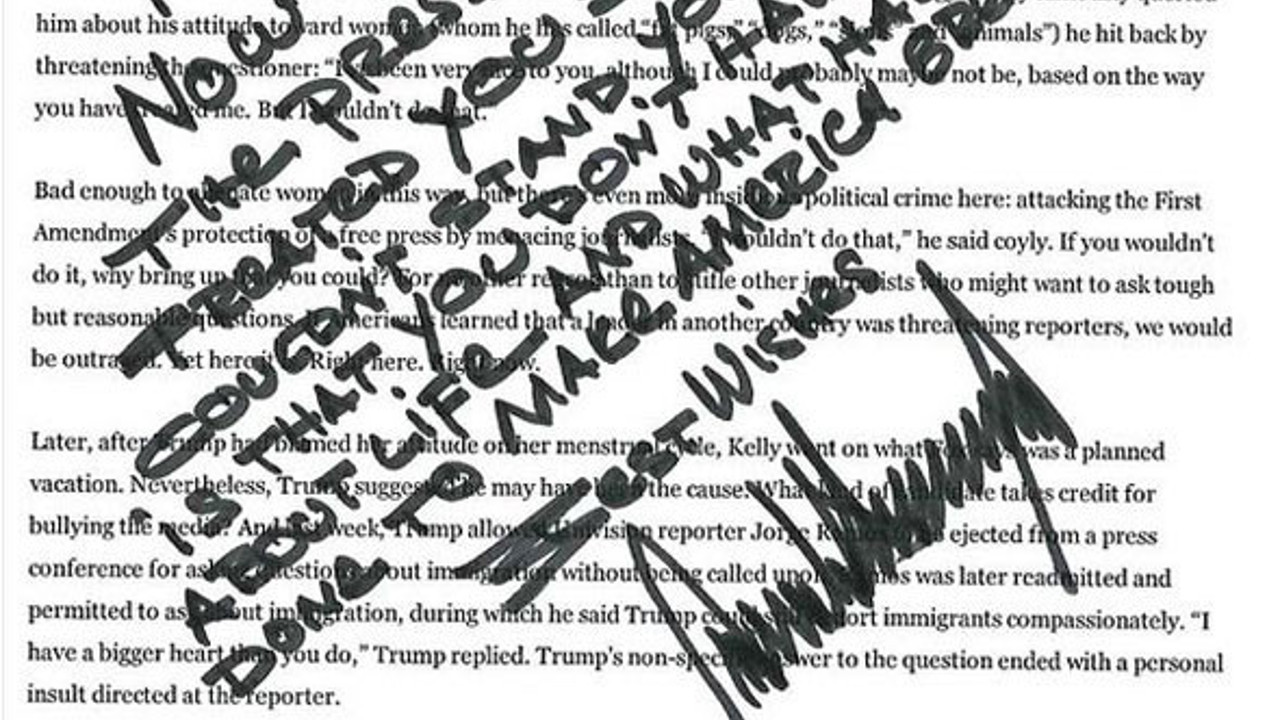 him about his attitude toward women (whom he has called "fat pigs," "dogs," "slobs" and animals") he hit back by
threatening the questioner: "I've been very nice to you, although I could probably maybe not be, based on the way
you have treated me. But I wouldn't do that."
Bad enough to alienate women in this way, but there's even more insidious political crime here: attacking the First
Amendment's protection of a free press by menacing journalists. "I wouldn't do that," he said coyly. If you wouldn't
do it, why bring up that you could? For no other reason than to stifle other journalists who might want to ask tough
but reasonable questions. If Americans learned that a leader in another country was threatening reporters, we would
be outraged. Yet here it is. Right here. Right now.
Later, after Trump had blamed her attitude on her menstrual cycle, Kelly went on what Fox says was a planned
vacation. Nevertheless, Trump suggested he may have been the cause. What kind of candidate takes credit for
bullying the media? And last week, Trump allowed Univision reporter Jorge Ramos to be ejected from a press
conference for asking questions about immigration without being called upon. Ramos was later readmitted and
permitted to ask about immigration, during which he said Trump could not deport immigrants compassionately. "I
have a bigger heart than you do," Trump replied. Trump's non-specific answer to the question ended with a personal
insult directed at the reporter.
NOW
THE PRES
TREATED YOU
COULDN'T STAND YO
IS THAT YOU DON'T HA
ABOUT LIFE AND WHAT HA
DONE TO MAKE AMERICA
BEST WISHES